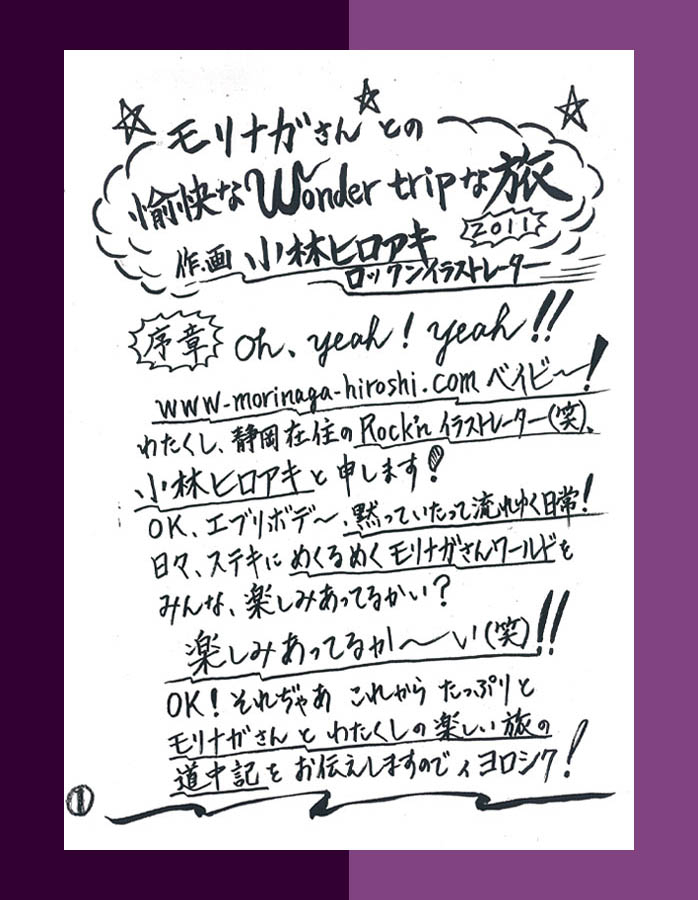 モリナガさんとの
愉快なWonder tripな旅
2011
作.画 小林ヒロアキ
ロックンイラストレーター
序章 Oh、yeah! yeah!!
www-morinaga-hiroshi.com ベイビ〜!
わたくし、静岡在住のRock'n イラストレーター(笑)、
小林ヒロアキと申します!
OK、エブリボデ〜、黙っていたって流れゆく日常!
日々、ステキにめくるめくモリナガさんワールドを
みんな、楽しみあってるかい?
楽しみあってるか〜い(笑)!!
OK! それぢゃあ これから たっぷりと
モリナガさんとわたくしの楽しい旅の
道中記をお伝えしますのでィヨロシク!
①